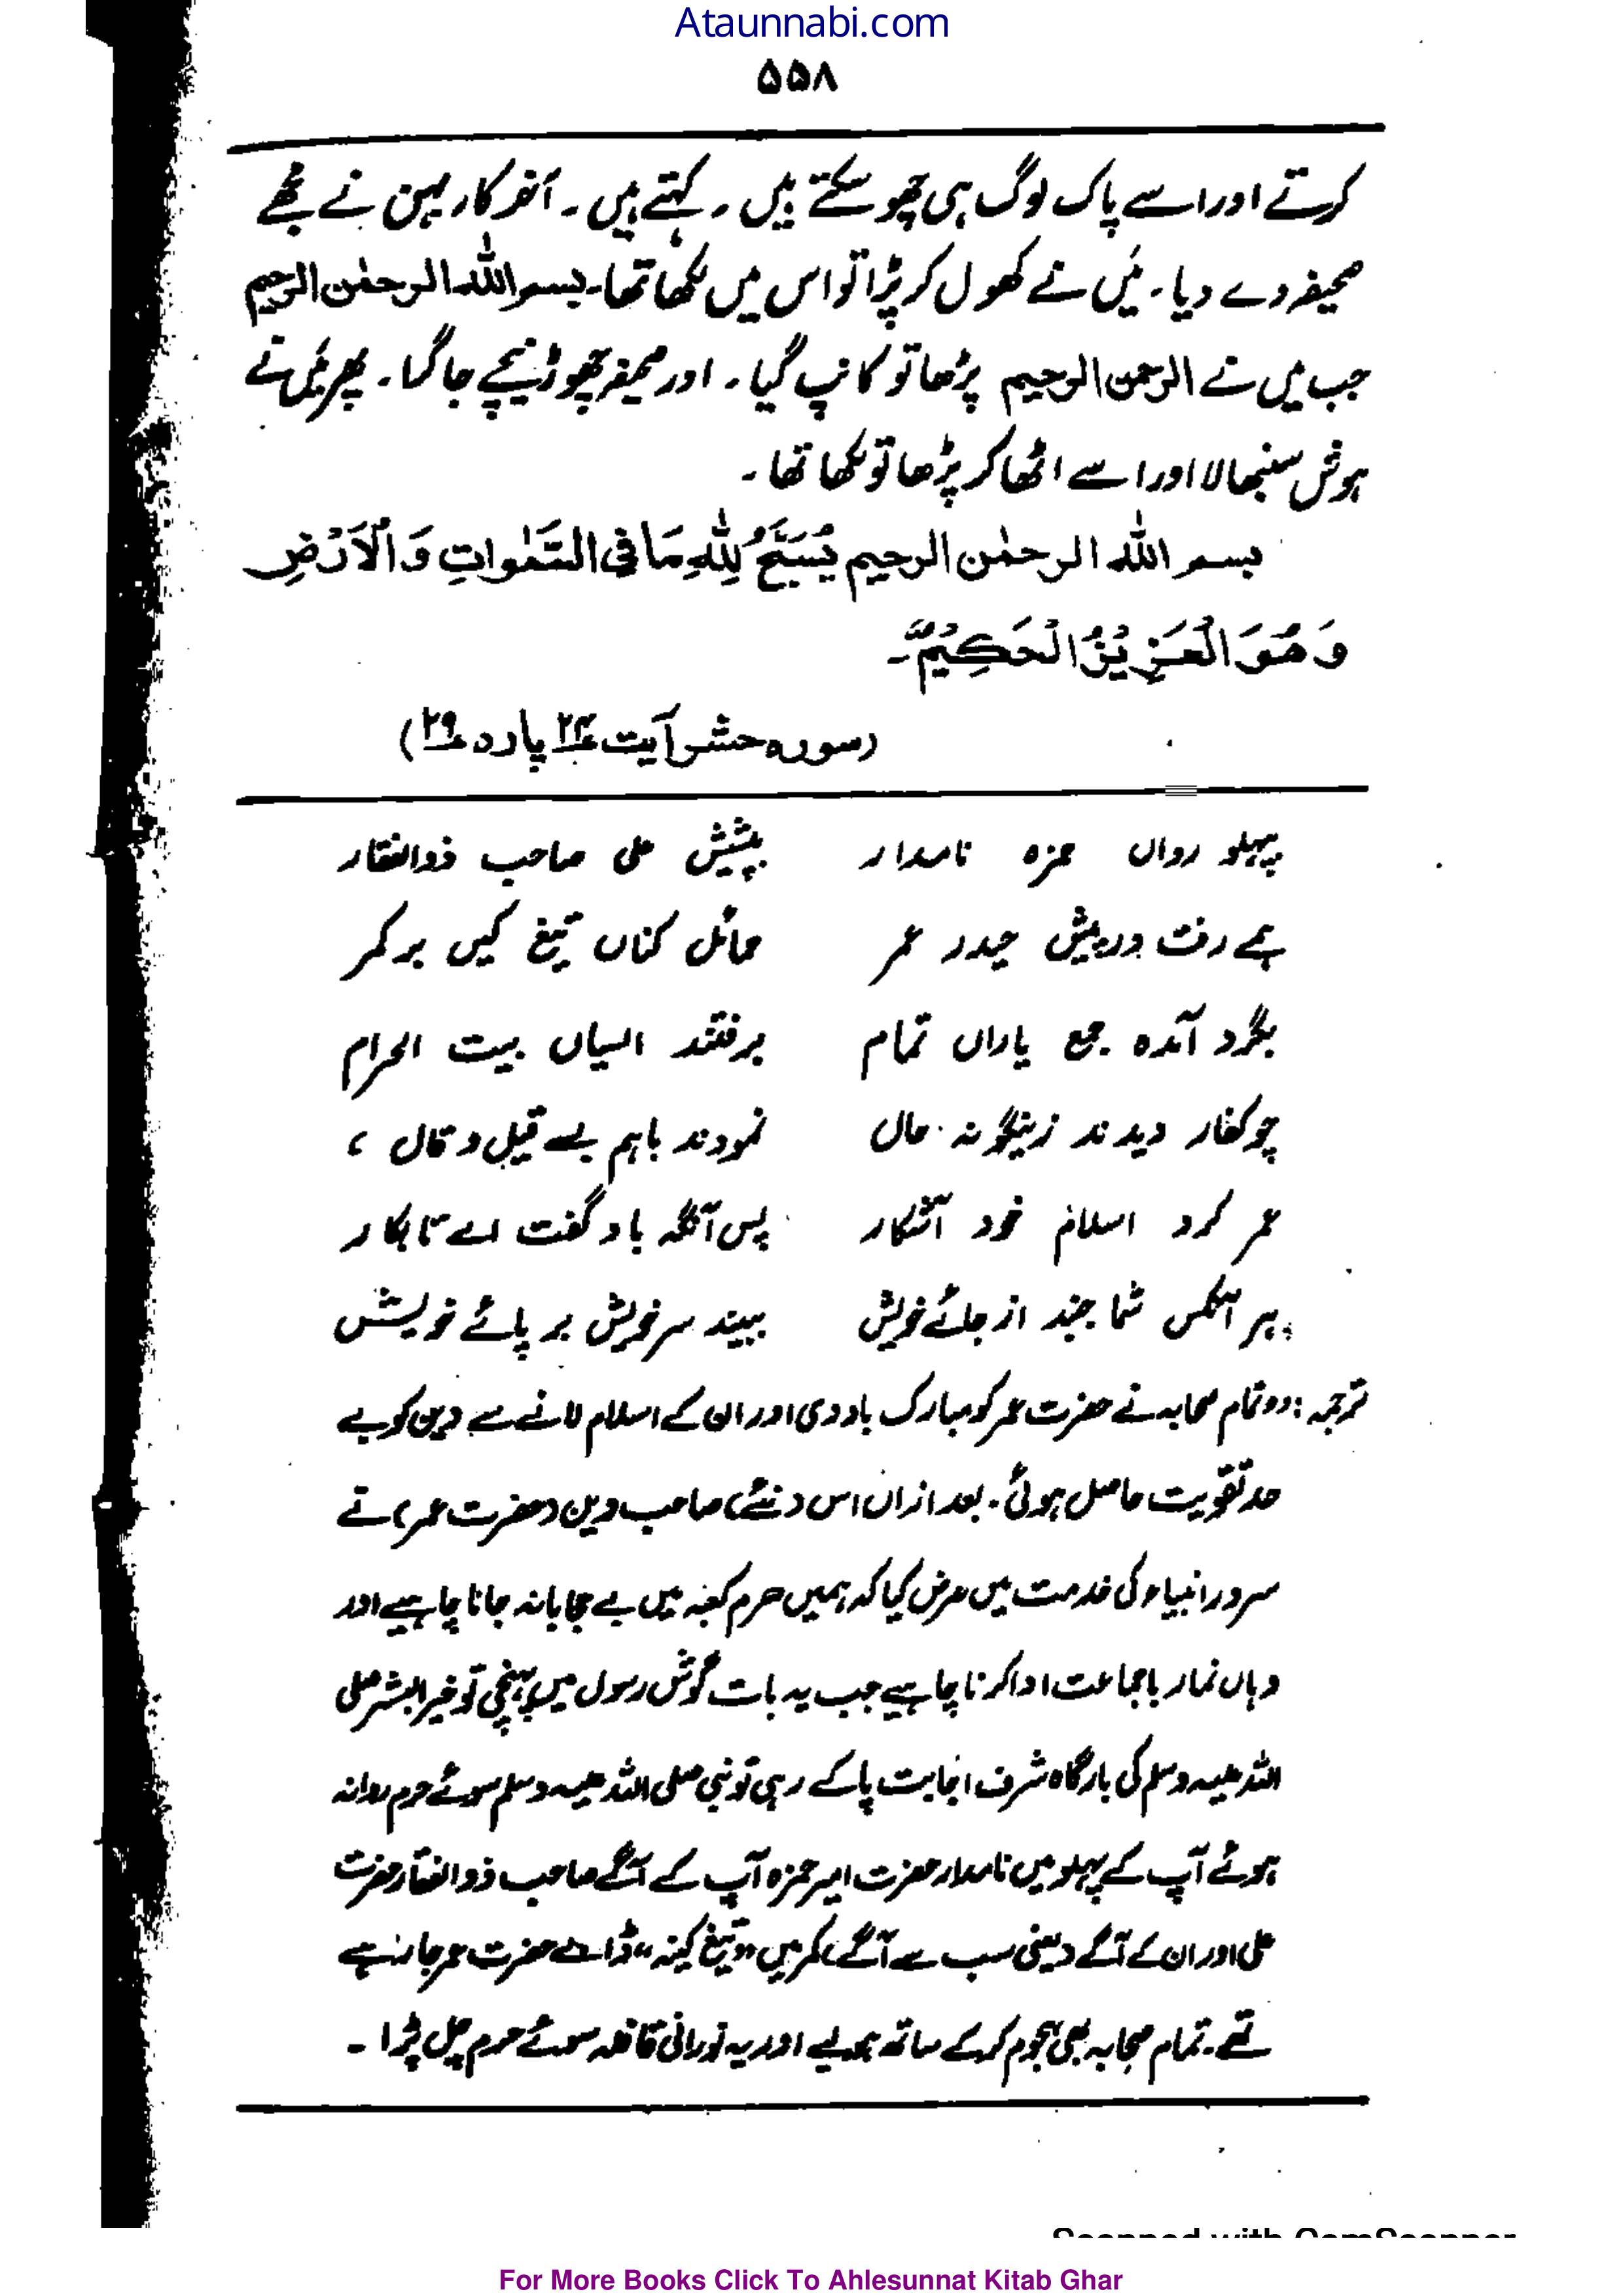 Ataunnabi.com
۵۵۸
کرتے اور اسے پاک لوگ ہی چھو سکتے ہیں ۔ کہتے ہیں ۔ آخر کار بہن نے مجھے
صحیفہ دے دیا ۔ میَں نے کھول کر پڑا تو اس میں لکھا تھا۔ بسم اللہ الرحمٰن الرحیم
جب میں نے الرحمن الرحیم پڑھا تو کانپ گیا ۔ اور صحیفہ چھوڑ نیچے جا گرا ۔ پھر میَں نے
ہوش سنبھالا اور اسے اٹھا کر پڑھا تو لکھا تھا ۔
بسم اللہ الرحمٰن الرحیم یُسَبِّحُ لِلّٰہِ مَا فِی السَّمٰوٰاتِ وَالْاَرْضِ
وَھُوَ الْعَزِیْزُ الْحَکِیْمُ ۔
(سورہ حشر آیت ۲۴ پارہ ۲۹)
پہلو رواں حمزہ نامدار بپیشش علی صاحب ذوالفقار
ہمے رفت در پیش حیدر عمر حمائل کناں تیغ کیں بر کمر
بگرد آمدہ جمع یاراں تمام برفتند السیاں بیت الحرام
چو کفار دیدند زینگونہ حال نمودند باہم بسے قیل و قال ،
عمر کرد اسلام خود آشکار پس آنگہ باد گفت اے نابکار
ہر آنکس شما جنبد از جائے خویش ببیند سر خویش بر پائے خویش
ترجمہ : ’’تمام صحابہ نے حضرت عمر کو مبارک باد دی اور ان کے اسلام لانے سے دین کو بے
حد تقویت حاصل ہوئی ۔ بعد ازاں اس (نئے) صاحب دین (حضرت عمر) نے
سرور انبیاء کی خدمت میں عرض کیا کہ ہمیں حرم کعبہ میں بے حجابانہ جانا چاہیے اور
وہاں نماز باجماعت ادا کرنا چاہیے جب یہ بات گوش رسول میں پہنچی تو خیر البشر صلی
اللہ علیہ وسلم کی بارگاہ شرف اجابت پا کے رہی تو نبی صلی اللہ علیہ وسلم سوئے حرم روانہ
ہوئے آپ کے پہلو میں نامدار حضرت امیر حمزہ آپ کے آگے صاحب ذوالفقار حضرت
علی اور ان کے آگے (یعنی سب سے آگے) کمر میں ’’تیغ کینہ‘‘ ڈالے حضرت عمر جا رہے
تھے ۔ تمام صحابہ بھی ہجوم کر کے ساتھ ہو لیے اور یہ نورانی قافلہ سوئے حرم چل پڑا ۔
Scanned with CamScanner
For More Books Click To Ahlesunnat Kitab Ghar